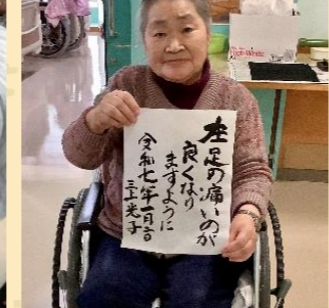 左足の痛いのが
良くなり
ますように
令和七年一月六日
三上光子